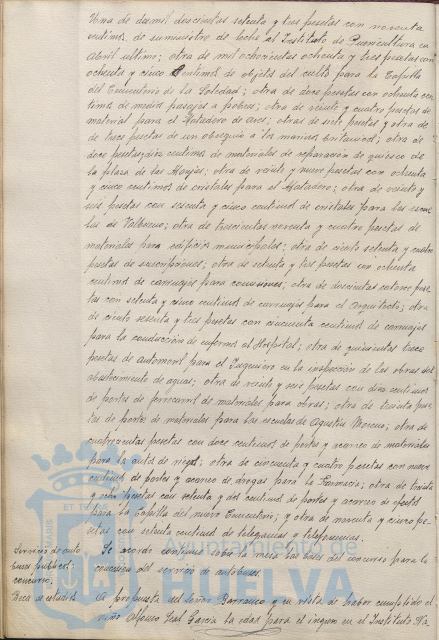 Una de dos mil doscientas setenta y tres pesetas con noventa
centimos de suministro de leche al Instituto de Puericultura en
Abril ultimo; otra de mil ochocientas ochenta y tres pesetas con
ochenta y cinco centimos de objetos del culto para la Capilla
del Cementerio de la Soledad; otra de doce pesetas con ochenta cen-
timos de medios pasajes a pobres; otra de veinte y cuatro pesetas de
material para el Matadero de aves; otras de siete pesetas y otra de
de trece pesetas de un obsequio a los marinos britanicos; otra de
doce pesetas diez centimos de materiales de reparación de quiosco de
la plaza de las Monjas; otra de veinte y nueve pesetas con ochenta
y cinco centimos de cristales para el Matadero; otra de veinte y
seis pesetas con sesenta y cinco centimos de cristales para las escue-
las de Valbueno; otra de trescientas noventa y cuatro pesetas de
materiales para edificios municipales; otra de ciento setenta y cuatro
pesetas de suscripciones; otra de setenta y tres pesetas con ochenta
centimos de carruajes para comisiones; otra de doscientas catorce pese-
tas con setenta y cinco centimos de carruajes para el Arquitecto; otra
de ciento sesenta y tres pesetas con cincuenta centimos de carruajes
para la conducción de enfermos al Hospital; otra de quinientas trece
pesetas de automovil para el Ingeniero en la inspección de las obras del
abastecimiento de aguas; otra de veinte y seis pesetas con diez centimos
de portes de ferrocarril de materiales para obras; otra de treinta pese-
tas de portes de materiales para las escuelas de Agustin Moreno; otra de
cuatrocientas pesetas con doce centimos de portes y acarreo de materiales
para la auto de riego; otra de cincuenta y cuatro pesetas con nueve
centimos de portes y acarreo de drogas para la Farmacia; otra de treinta
y seis pesetas con setenta y dos centimos de portes y acarreo de efectos
para la Capilla del nuevo Cementerio; y otra de noventa y cinco pe-
setas con setenta centimos de telegramas y telefonemas.
Servicio de auto
buses publicos:
concurso.
Se acordó continúe sobre la mesa las bases del concurso para la
concesión del servicio de autobuses.
Beca de estudios.
A propuesta del señor Barranco y en vista de haber cumplido el
niño Alfonso Leal García la edad para el ingreso en el Instituto Pá-
Ayuntamiento de
HUELVA